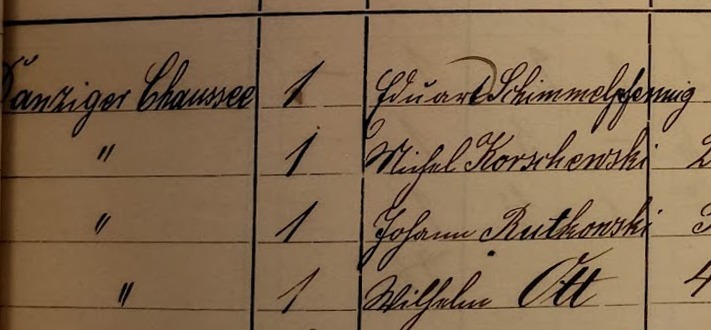 Danziger Chaussee 1 Eduard Schimmelpfennig
" 1 Michel Korschewski 2
" 1 Johann Rutkowski 3
" 1 Wilhelm Ott 4